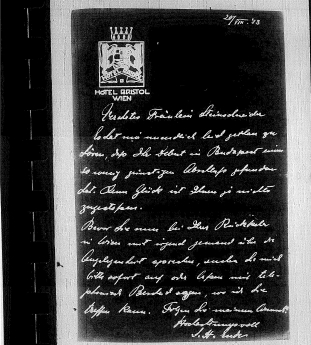 29/VIII. 33
HOTEL BRISTOL
WIEN
Fräulein Steinschneider
es hat mir unendlich leid getan zu
hören, dass Ihr Debut in Budapest einen
so wenig günstigen gefunden
hat. Denn Glück ist Ihnen ja nichts
zugestossen.
Bevor Sie nun bei Ihrer Rückkehr
in Wien mit irgend jemand über die
Angelegenheit sprechen, Sie mich
bitte sofort auf oder lassen mir tele-
phonisch Bescheid sagen, wo ich Sie
treffen kann. Folgen Sie meinem
Hochachtungsvoll